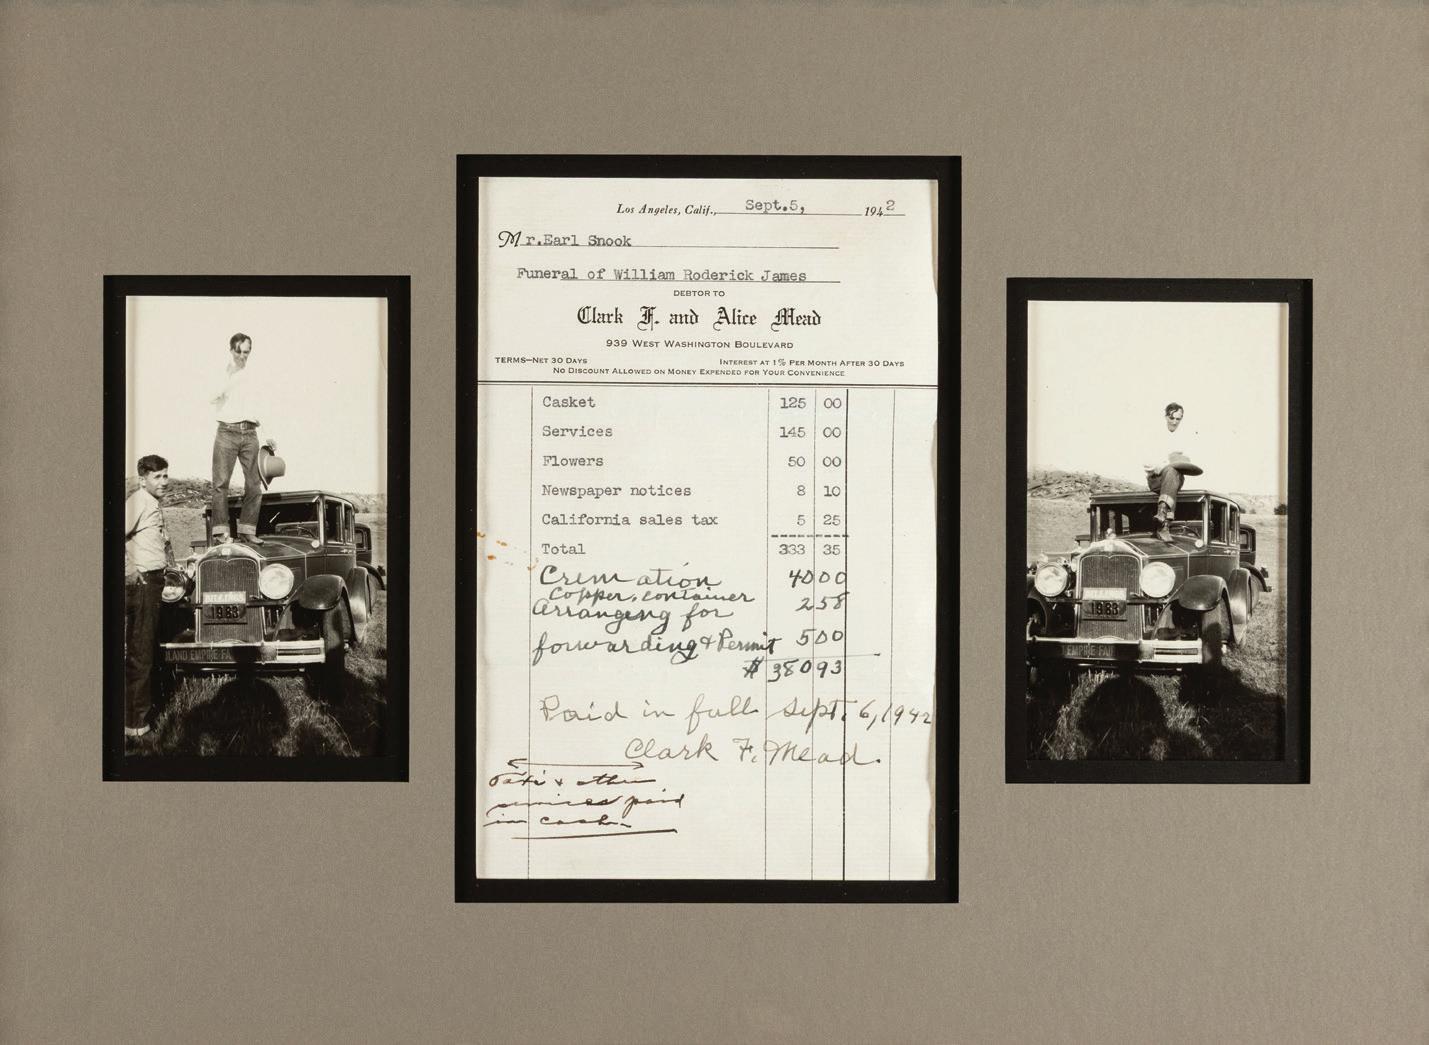 Los Angeles, Calif., Sept.5, 1942
Mr.Earl Snook
Funeral of William Roderick James
DEBTOR TO
Clark F. and Alice Mead
939 WEST WASHINGTON BOULEVARD
TERMS—NET 30 DAYS INTEREST AT 1% PER MONTH AFTER 30 DAYS
NO DISCOUNT ALLOWED ON MONEY EXPENDED FOR YOUR CONVENIENCE
Casket 125 00
Services 145 00
Flowers 50 00
Newspaper notices 8 10
California sales tax 5 25
Total 333 35
Cremation 40 00
Copper, container 2 58
Arranging for
forwarding & Permit 5 00
$ 380 93
Paid in full Sept. 6, 1942
Clark F. Mead.
Taxi & other
services paid
in cash.
BILLINGS
1983
LAND EMPIRE FAI
BILLINGS
1983
EMPIRE FAI